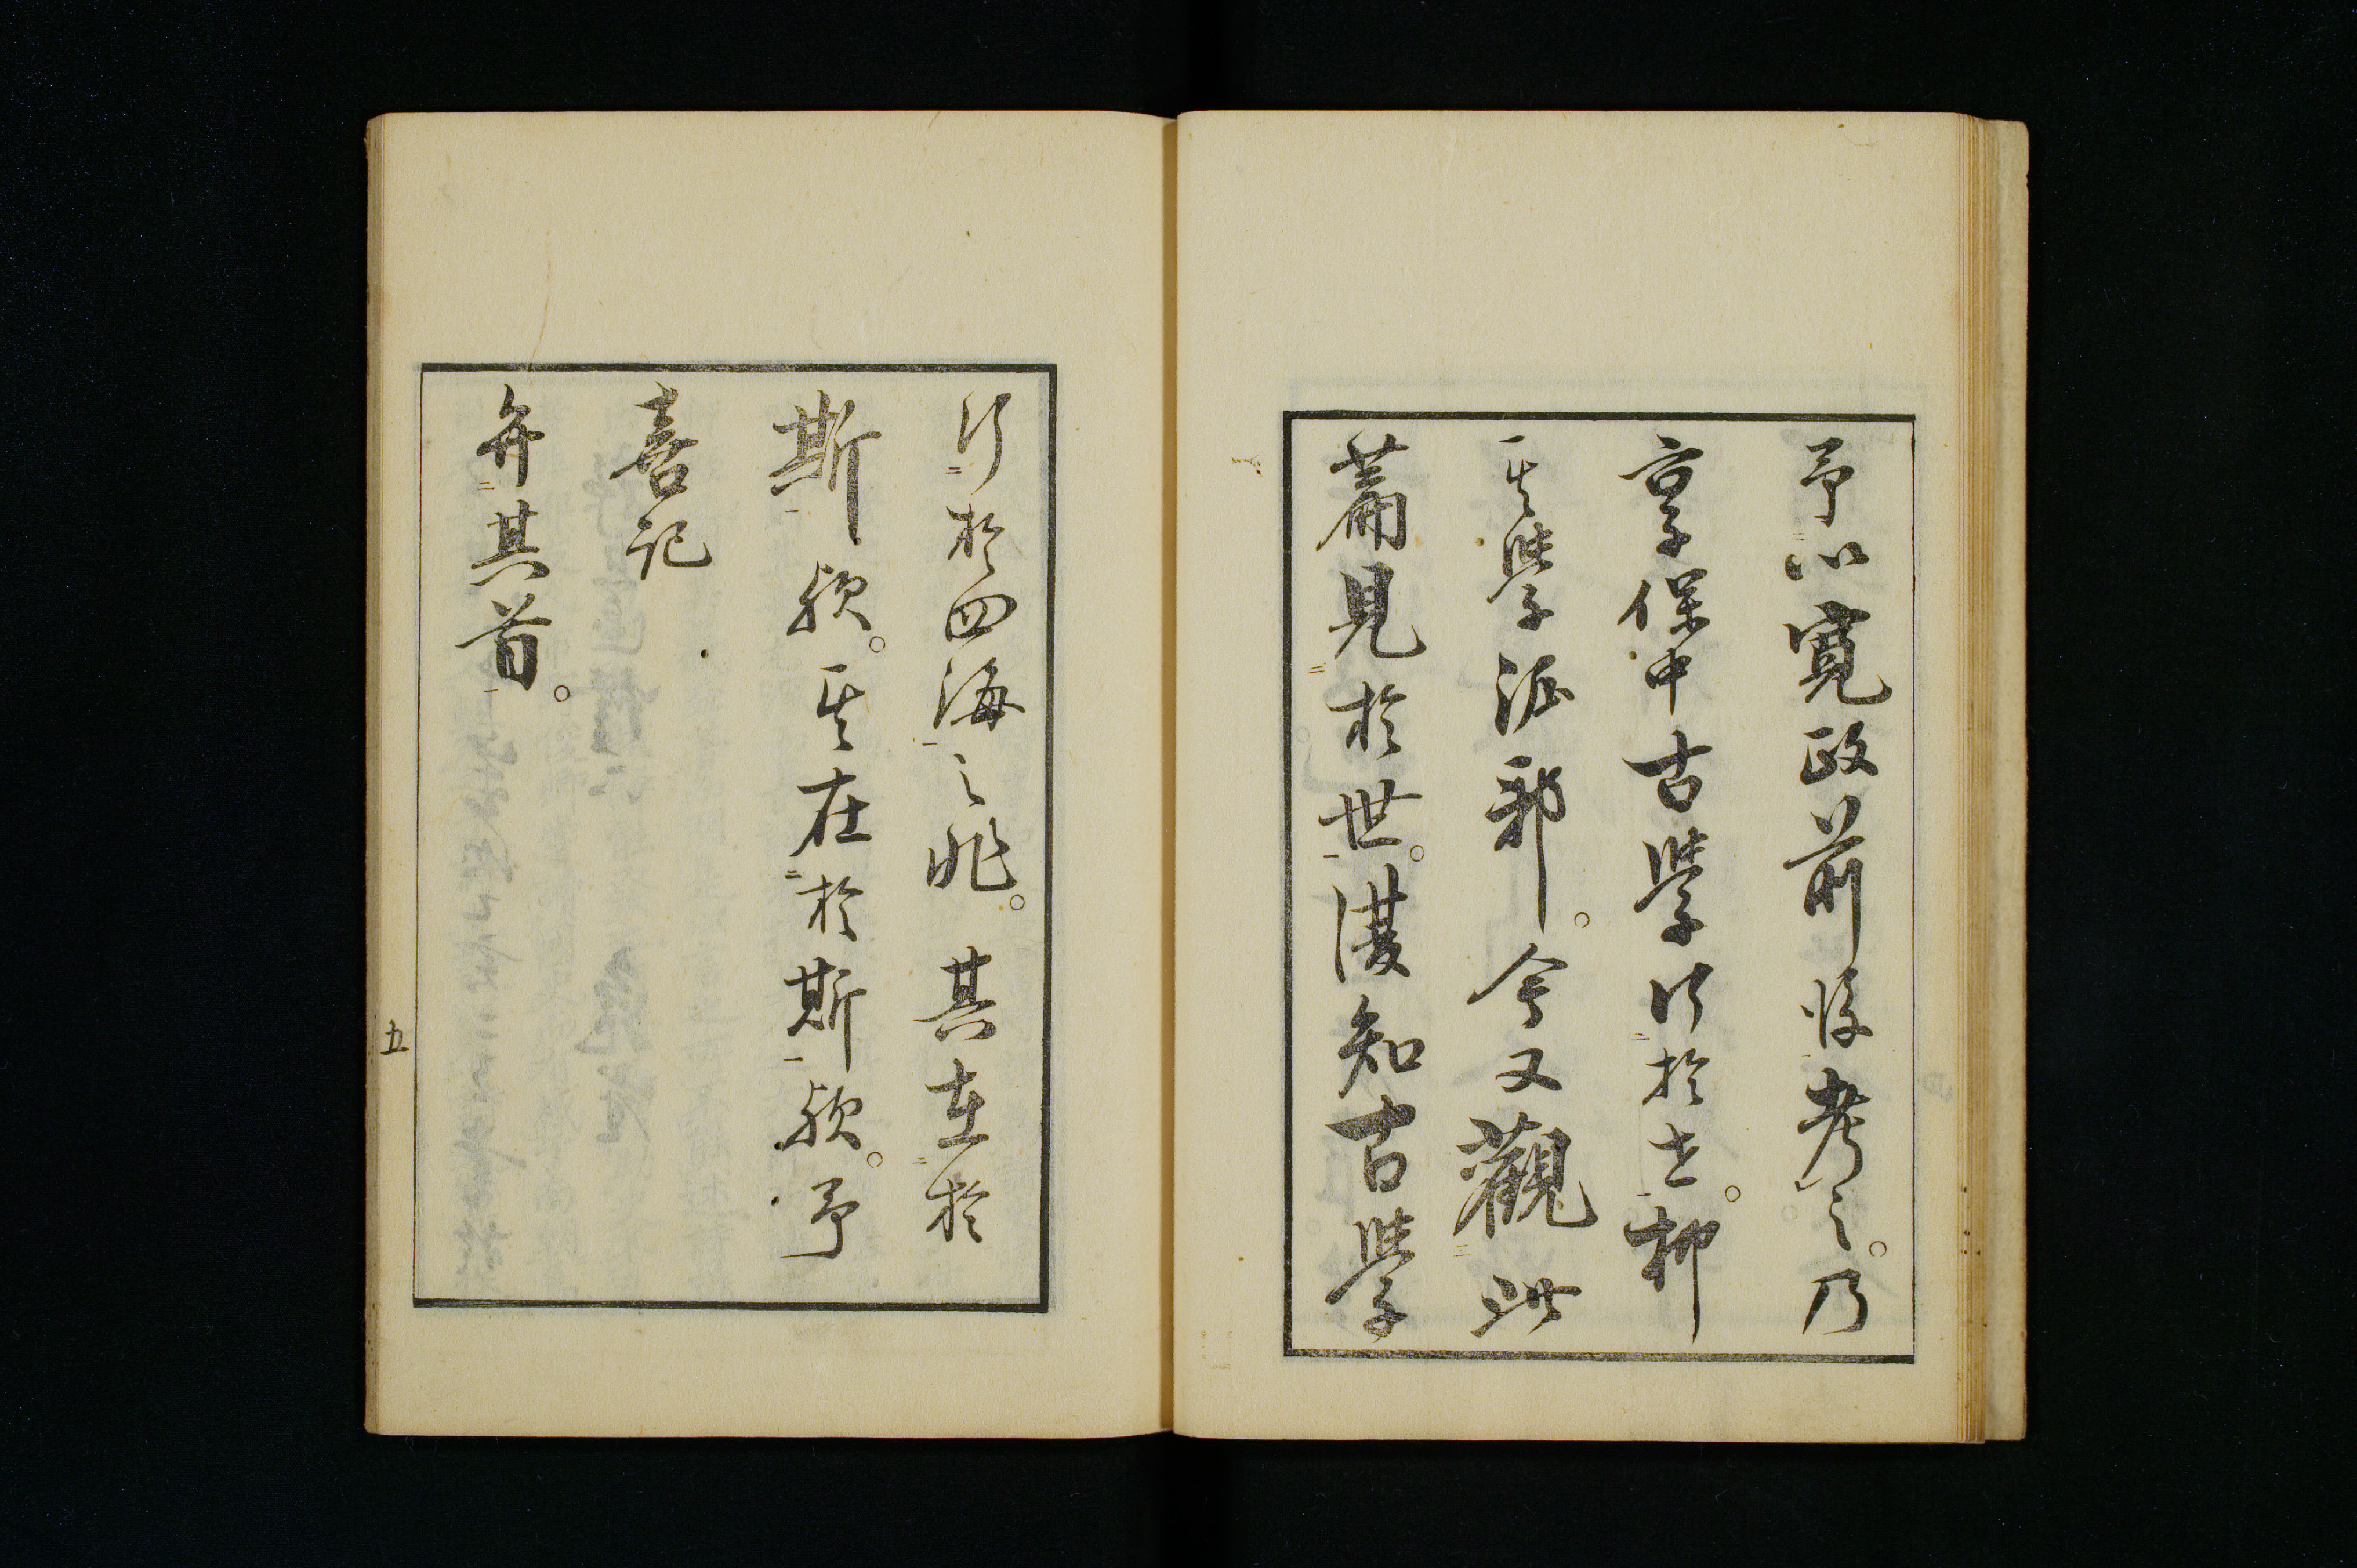 予以寛政前後考之。乃
享保中古學行於世。抑
其學派耶。今又觀此
篇見於世。謹知古學
行於四海之兆。其在於
斯歟。其在於斯歟。予
喜記
弁其首。
五